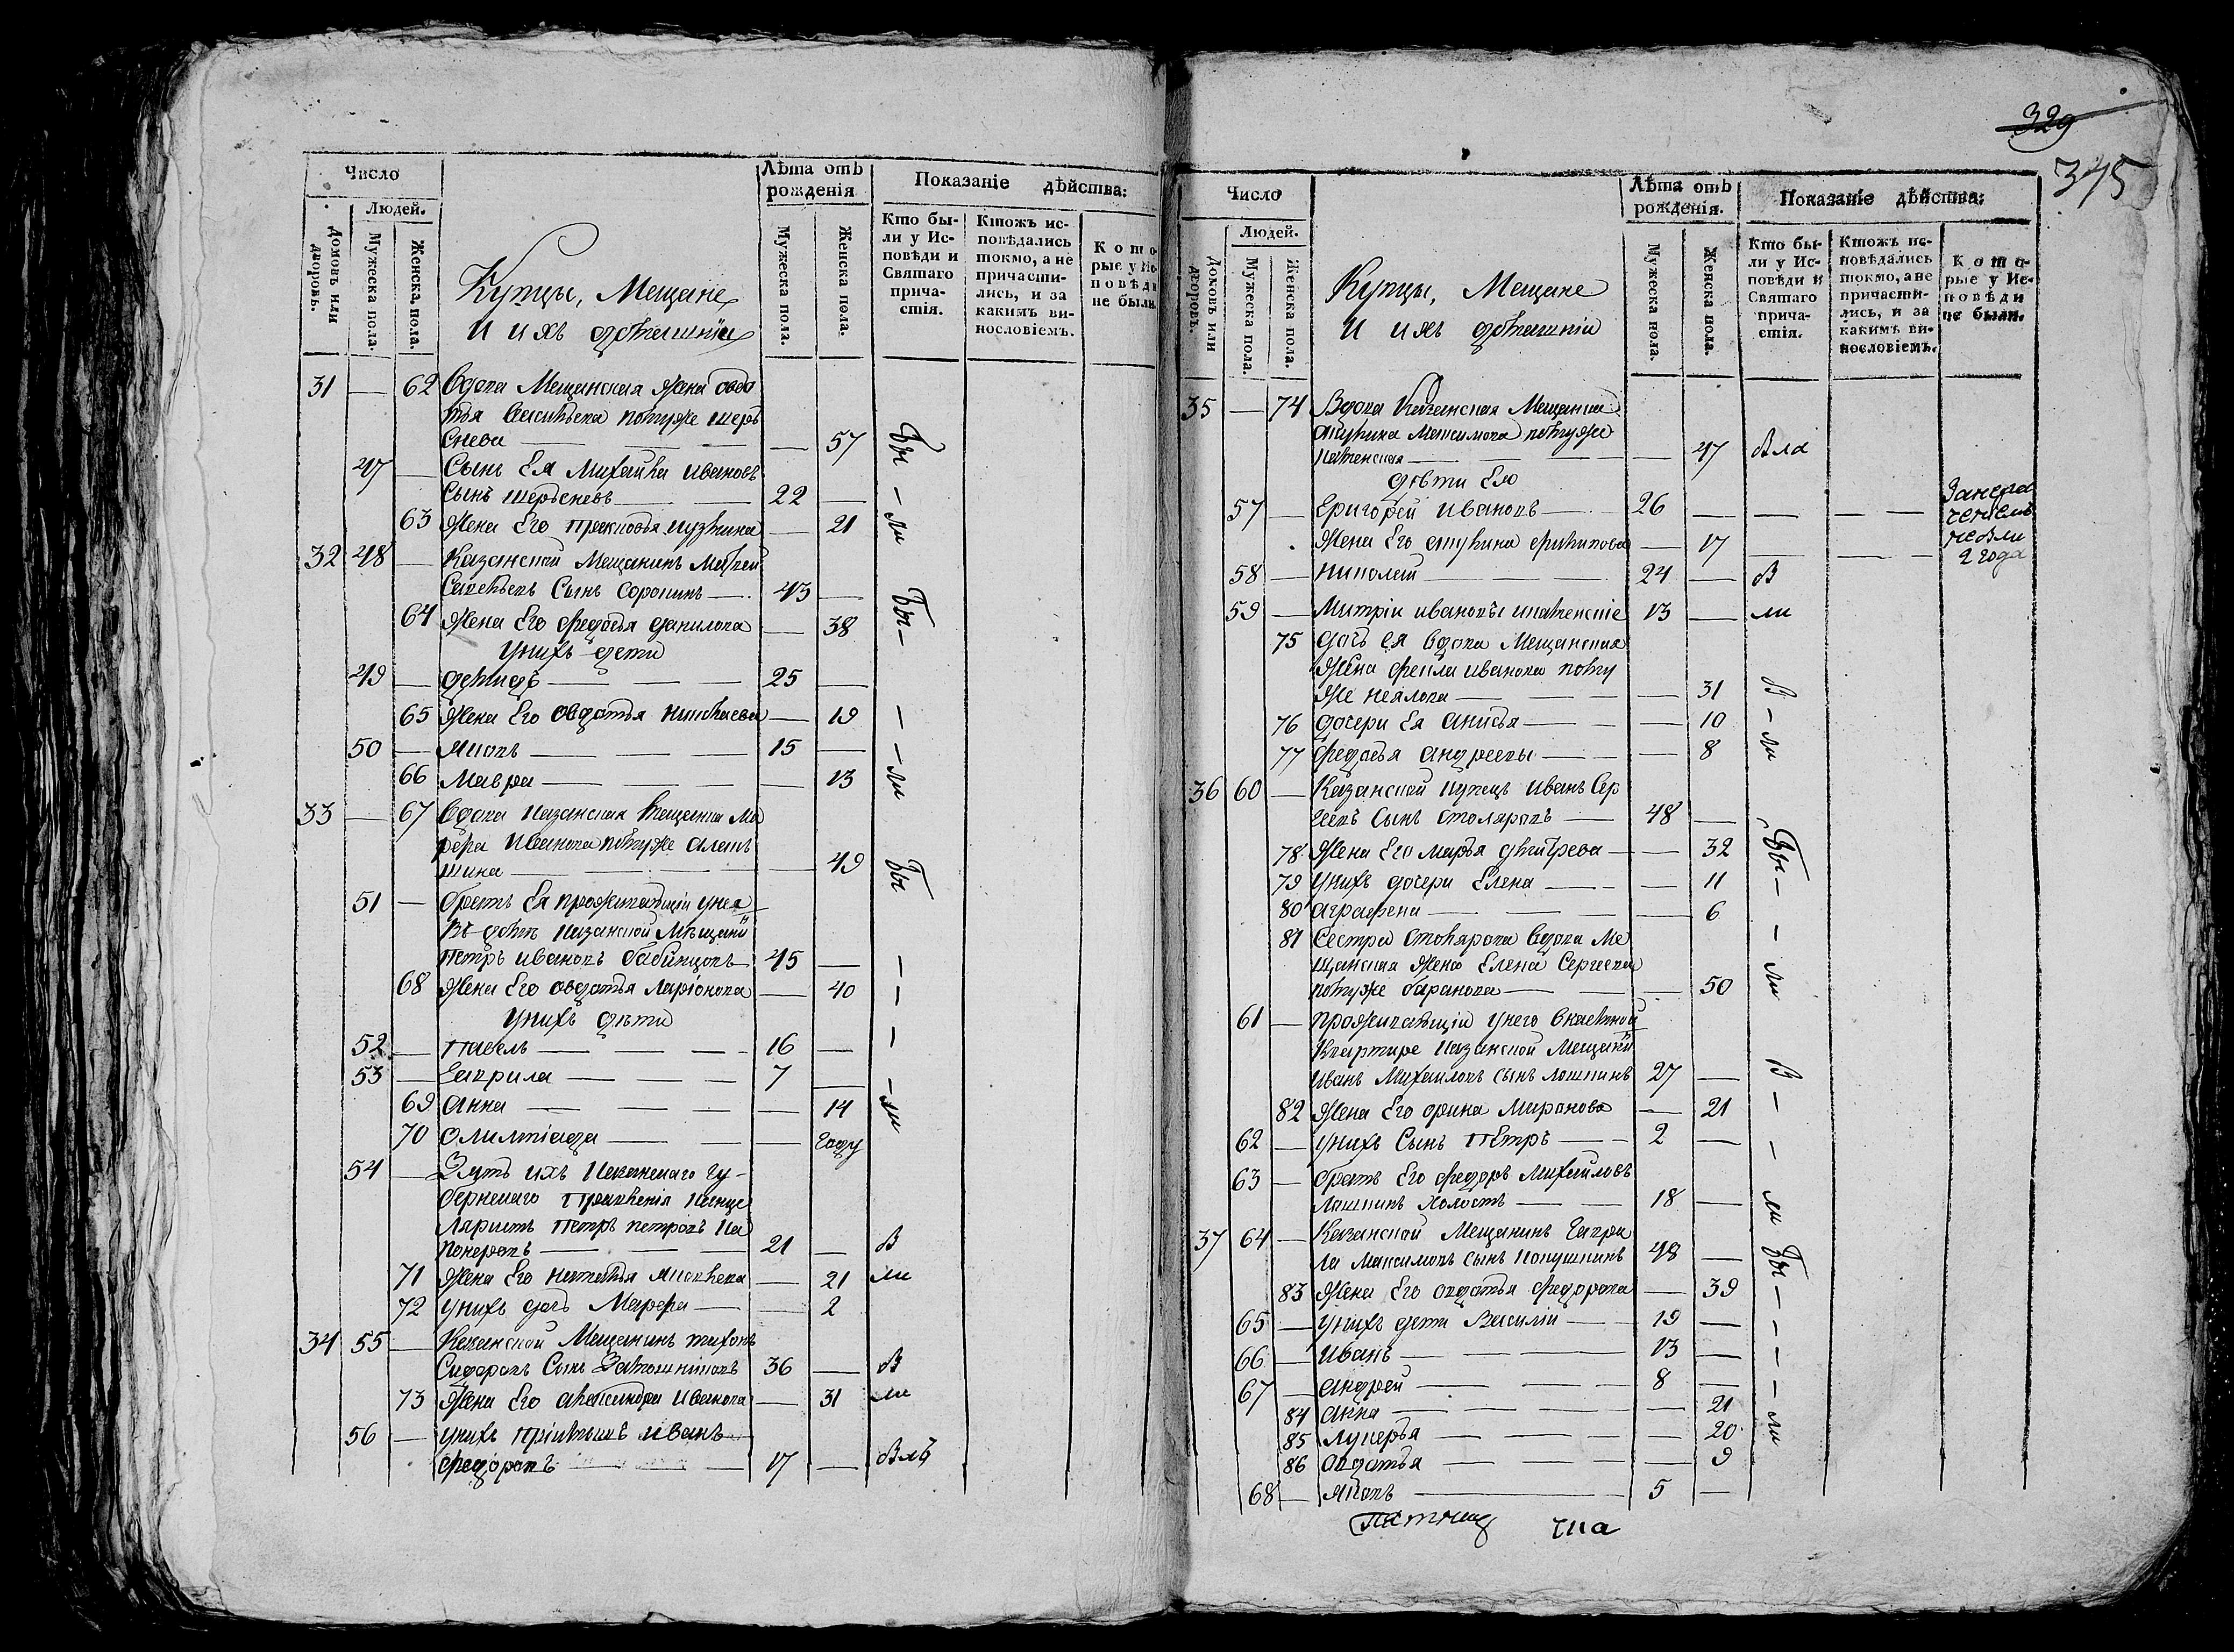 Число
Людей.
Домовъ или дворовъ.
Мужеска пола.
Женска пола.
Купцы, Мещане,
и ихъ домашнїи
Лѣта отъ рожденія
Мужеска пола.
Женска пола.
Показаніе дѣйства:
Кто бы-
ли у Ис-
повѣди и
Святаго
прича-
стія.
Ктожъ ис-
повѣдались
токмо, а не
причасти-
лись, и за
какимъ ви-
нословіемъ.
Кото-
рые у Ис-
повѣди
не были.
31 — 62 Вдова Мещанская жена Овдо
тья Васильева помуже шерь
снева — — 57 Бы
47 — Сынъ Ея Михайла Ивановъ
Сынъ шерьсневъ — 22 — —
63 Жена Его Прасковья — 21 ли
32 48 — Казанской Мещанинъ Матвей
Савельевъ Сынъ Соронинъ — 43 —
64 Жена Его Федосья Данилова — 38 Бы —
Унихъ дети
49 — Демидъ — 25 —
65 Жена Его Овдотья — 19 —
50 — Яковъ — 15 — —
66 Мавра — 13 ли
33 — 67 Вдова Казанская Мещанка Ма
рфа Иванова помуже Алень
шина — 49 Бы
51 — Братъ Ея проживающїи унея
въ доме Казанской Мещани
Петръ Ивановъ Бабинцовъ 45 — —
68 Жена Его Овдотья Ларїонова — 40 —
Унихъ дѣти
52 — Павелъ — 16 — —
53 — Гаврила — 7 — —
69 Анна — 14 ли
70 Олимпїада — году
54 — Зять ихъ Казанскаго Гу-
бернскаго Правленїя Канце
ляристъ Петръ Петровъ Ка
— 21 — В
71 Жена Его Наталья Яковлева — 21 ли
72 Унихъ дочь Марфа — 2
34 55 — Казанской Мещанинъ Тихонъ
Сидоровъ Сынъ 36 — В
73 Жена Его Александра Иванова — 31 ли
56 — Унихъ прїимышъ Иванъ
Федоровъ — 17 — Былъ
329
345
Число
Людей.
Домовъ или дворовъ.
Мужеска пола.
Женска пола.
Купцы, Мещане
и ихъ домашнїи
Лѣта отъ рожденія.
Мужеска пола.
Женска пола.
Показаніе дѣйства:
Кто бы-
ли у Ис-
повѣди и
Святаго
прича-
стія.
Ктожъ ис-
повѣдались
токмо, а не
причасти-
лись, и за
какимъ ви-
нословіемъ.
Кото-
рые у Ис-
повѣди
не были.
35 — 74 Вдова Казанская Мещанка
Акулина Максимова помуже
— — 47 была
дѣти Ею
57 — Григорей Ивановъ — 26 — — — — Занера
чениемъ
Жена Его Акулина Филипова — 17 — — — небыли
2 года
58 — Николай — 24 — В
59 — Митрїи Ивановы 13 — ли
75 дочь ея вдова Мещанская
Жена Фекла Иванова пому
же — — 31 В
76 дочери Ея Анисья — — 10 —
77 Федосья Андреевы — — 8 ли
36 60 — Казанской Купецъ Иванъ Сер
геевъ Сынъ Столяровъ — 48 —
78 Жена Его Марья Дмитрева — 32 Бы —
79 Унихъ дочери Елена — — 11
80 Аграфена — — 6
81 Сестра Столярова Вдова Ме
щанская Жена Елена Сергеева
помуже Баранова — — 50 ли
61 — Проживающїи унего внаемной
Квартире Казанской Мещани
Иванъ Михаиловъ сынъ Лошкинъ 27 — В
82 Жена Его Орина Миронова — 21 —
62 — Унихъ Сынъ Петръ — 2 — —
63 — Братъ Его Федоръ Михаиловъ
Лошкинъ Холостъ — 18 — ли
37 64 — Казанской Мещанинъ Гаври
ла Максимовъ сынъ Колушкинъ 48 — Бы
83 Жена Его Овдотья Федорова — 39 —
65 — Унихъ дети Василїи — 19 — —
66 — Иванъ — 13 — —
67 — Андрей — 8 — —
84 Анна — — 21
85 Лукерья — — 20 ли
86 Овдотья — — 9
68 — Яковъ — 5 —